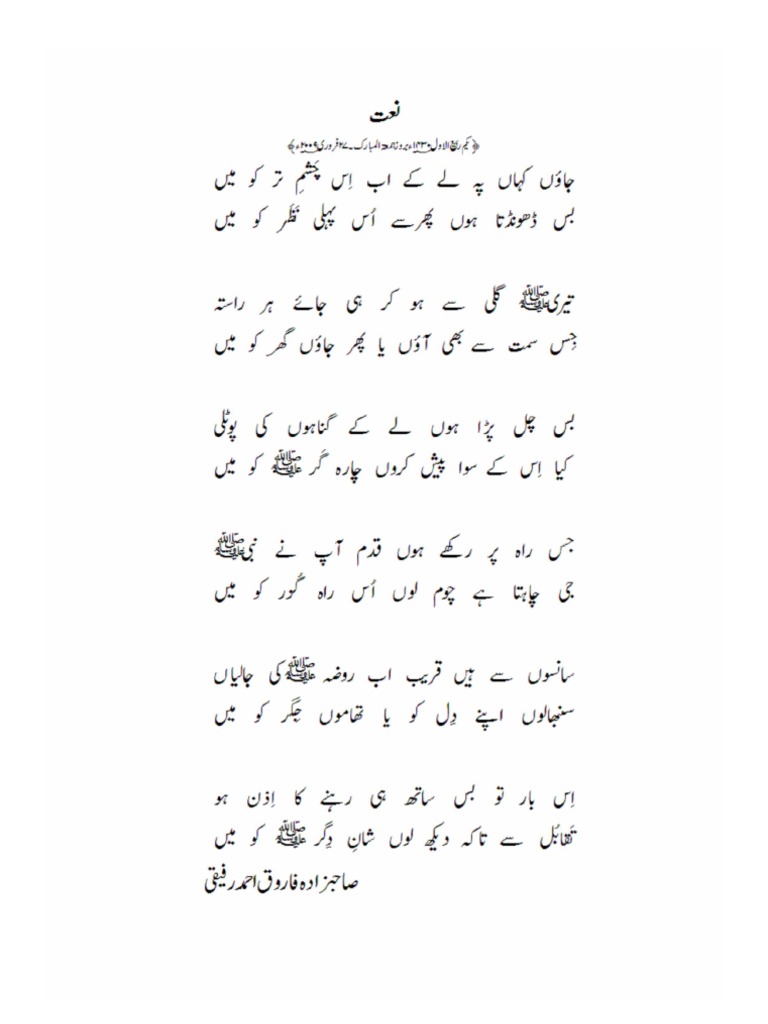 نعت
﴿یکم ربیع الاول ۱۴۳۰ء بروز جمعۃ المبارک۔۲۷ فروری ۲۰۰۹ء﴾
جاؤں کہاں پہ لے کے اب اِس چَشمِ تر کو میں
بس ڈھونڈتا ہوں پھر سے اُس پہلی نَظَر کو میں
تیری ﷺ گلی سے ہو کر ہی جائے ہر راستہ
جِس سمت سے بھی آؤں یا پھر جاؤں گھر کو میں
بس چل پڑا ہوں لے کے گناہوں کی پوٹلی
کیا اِس کے سوا پیش کروں چارہ گَر ﷺ کو میں
جس راہ پر رکھے ہوں قدم آپ نے نبی ﷺ
جی چاہتا ہے چوم لوں اُس راہ گُور کو میں
سانسوں سے ہیں قریب اب روضہ ﷺ کی جالیاں
سنبھالوں اپنے دِل کو یا تھاموں جِگَر کو میں
اِس بار تو بس ساتھ ہی رہنے کا اِذن ہو
تَقابُل سے تاکہ دیکھ لوں شانِ دِگر ﷺ کو میں
صاحبزادہ فاروق احمد رفیقی